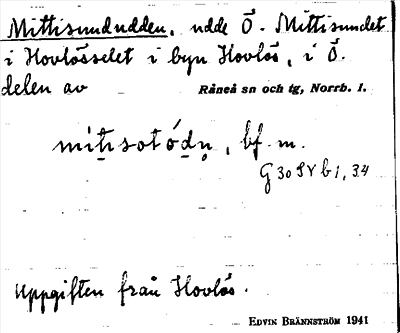 Mittisundudden, udde Ö. Mittisundet
i Hovlösselet i byn Hovlös, i Ö.
delen av Råneå sn och tg, Norrb. l.
mitisotódn̥, bf. m.
G 30 SV b 1, 34
Uppgiften från Hovlös.
EDVIN BRÄNNSTRÖM 1941